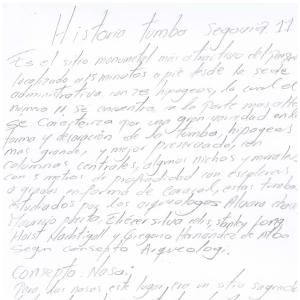 Historia tumba Segovia 11
Es el sitio monumental mas atractivo del parque
localizado a 15 minutos a pie desde la sede
administrativa con hipogeos, la cual el
numero 11, se encuentra en la parte mas alta
se caracteriza por una gran variedad en la
forma y de la tumba, hipogeos
mas grande, y mejor preservado, con
columnas centrales, algunos nichos y murales
con 5 metros de profundidad con escaleras
en forma de caracol, estas tumbas
estudiados por los arqueologos Alvaro
Mauricio Eliécer Silva Stanley Long
Horst Nachtigall y Gregorio Hernandez de Alba
Segun consepto Arqueolog.
Consepto. Nasa:
Para los nasas este lugar, era un sitio sagrado